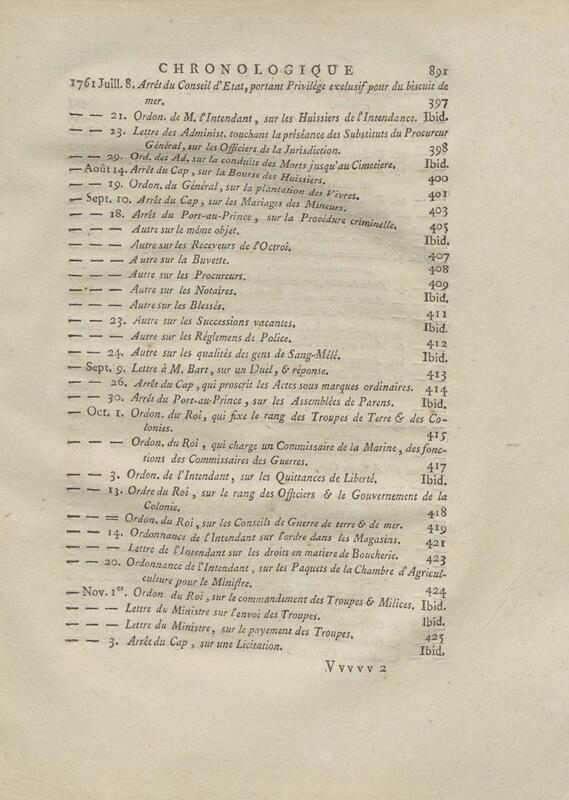 CHRONOLOGIQUE 891
1761 Juill. 8. Arrêt du Conseil d'Etat, portant Privilége exclusif pour du biscuit de
mer. 397
— — 21. Ordon. de M. l'Intendant, sur les Huissiers de l'Intendance. Ibid.
— — 23. Lettre des Administ. touchant la préséance des Substituts du Procureur
Général, sur les Officiers de la Jurisdiction. 398
— — 29. Ord. des Ad. sur la conduite des Morts jusqu'au Cimetiere. Ibid.
— Août 14. Arrêt du Cap, sur la Bourse des Huissiers. 400
— — 19. Ordon. du Général, sur la plantation des Vivres. 401
— Sept. 10. Arrêt du Cap, sur les Mariages des Mineurs. 403
— — 18. Arrêt du Port-au-Prince, sur la Procédure criminelle. 405
— — — Autre sur le même objet. Ibid.
— — — Autre sur les Receveurs de l'Octroi. 407
— — — Autre sur la Buvette. 408
— — — Autre sur les Procureurs. 409
— — — Autre sur les Notaires. Ibid.
— — — Autre sur les Blessés. 411
— — 23. Autre sur les Successions vacantes. Ibid.
— — — Autre sur les Réglemens de Police. 412
— — 24. Autre sur les qualités des gens de Sang-Mêlé. Ibid.
— Sept. 9. Lettre à M. Bart, sur un Duel, & réponse. 413
— — 26. Arrêt du Cap, qui proscrit les Actes sous marques ordinaires. 414
— — 30. Arrêt du Port-au-Prince, sur les Assemblées de Parens. Ibid.
— Oct. 1. Ordon. du Roi, qui fixe le rang des Troupes de Terre & des Co-
lonies. 415
— — — Ordon. du Roi, qui charge un Commissaire de la Marine, des fonc-
tions des Commissaires des Guerres. 417
— — 3. Ordon. de l'Intendant, sur les Quittances de Liberté. Ibid.
— — 13. Ordre du Roi, sur le rang des Officiers & le Gouvernement de la
Colonie. 418
— — — Ordon. du Roi, sur les Conseils de Guerre de terre & de mer. 419
— — 14. Ordonnance de l'Intendant sur l'ordre dans les Magasins. 421
— — — Lettre de l'Intendant sur les droits en matiere de Boucherie. 423
— — 20. Ordonnance de l'Intendant, sur les Paquets de la Chambre d'Agricul-
culture pour le Ministre. 424
— Nov. 1er. Ordon. du Roi, sur le commandement des Troupes & Milices. Ibid.
— — — Lettre du Ministre sur l'envoi des Troupes. Ibid.
— — — Lettre du Ministre, sur le payement des Troupes. 425
— — 3. Arrêt du Cap, sur une Licitation. Ibid.
Vvvvv 2